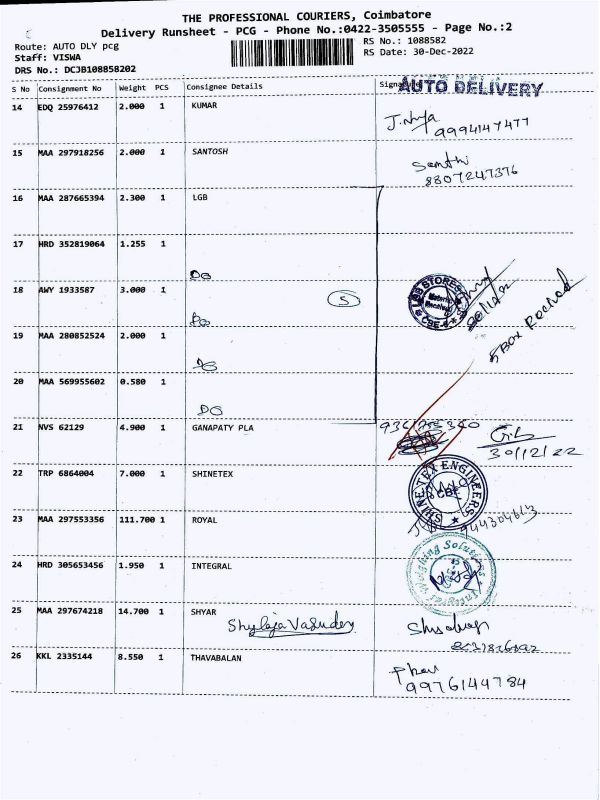 THE PROFESSIONAL COURIERS, Coimbatore
Delivery Runsheet - PCG - Phone No.:0422-3505555 - Page No.:2
Route: AUTO DLY pcg
RS No.: 1088582
Staff: VISWA
RS Date: 30-Dec-2022
DRS No.: DCJB108858202
S No Consignment No Weight PCS Consignee Details
AUTO DELIVERY
14 EDQ 25976412 2.000 1 KUMAR
9994147477
15 MAA 297918256 2.000 1 SANTOSH
8807247376
16 MAA 287665394 2.300 1 LGB
17 HRD 352819064 1.255 1
DG
18 AWY 1933587 3.000 1 5
LGB STORES
Material
Received
CBE-6
5 Box Recived
DG
19 MAA 280852524 2.000 1
DG
20 MAA 569955602 0.580 1
DG
21 NVS 62129 4.900 1 GANAPATY PLA
30/12/22
22 TRP 6864004 7.000 1 SHINETEX
SHINE TEX ENGINEERS
CBE
23 MAA 297553356 111.700 1 ROYAL
24 HRD 305653456 1.950 1 INTEGRAL
Weighing Solutions
25 MAA 297674218 14.700 1 SHYAR
Shylaja Vasudev
26 KKL 2335144 8.550 1 THAVABALAN
9976144784